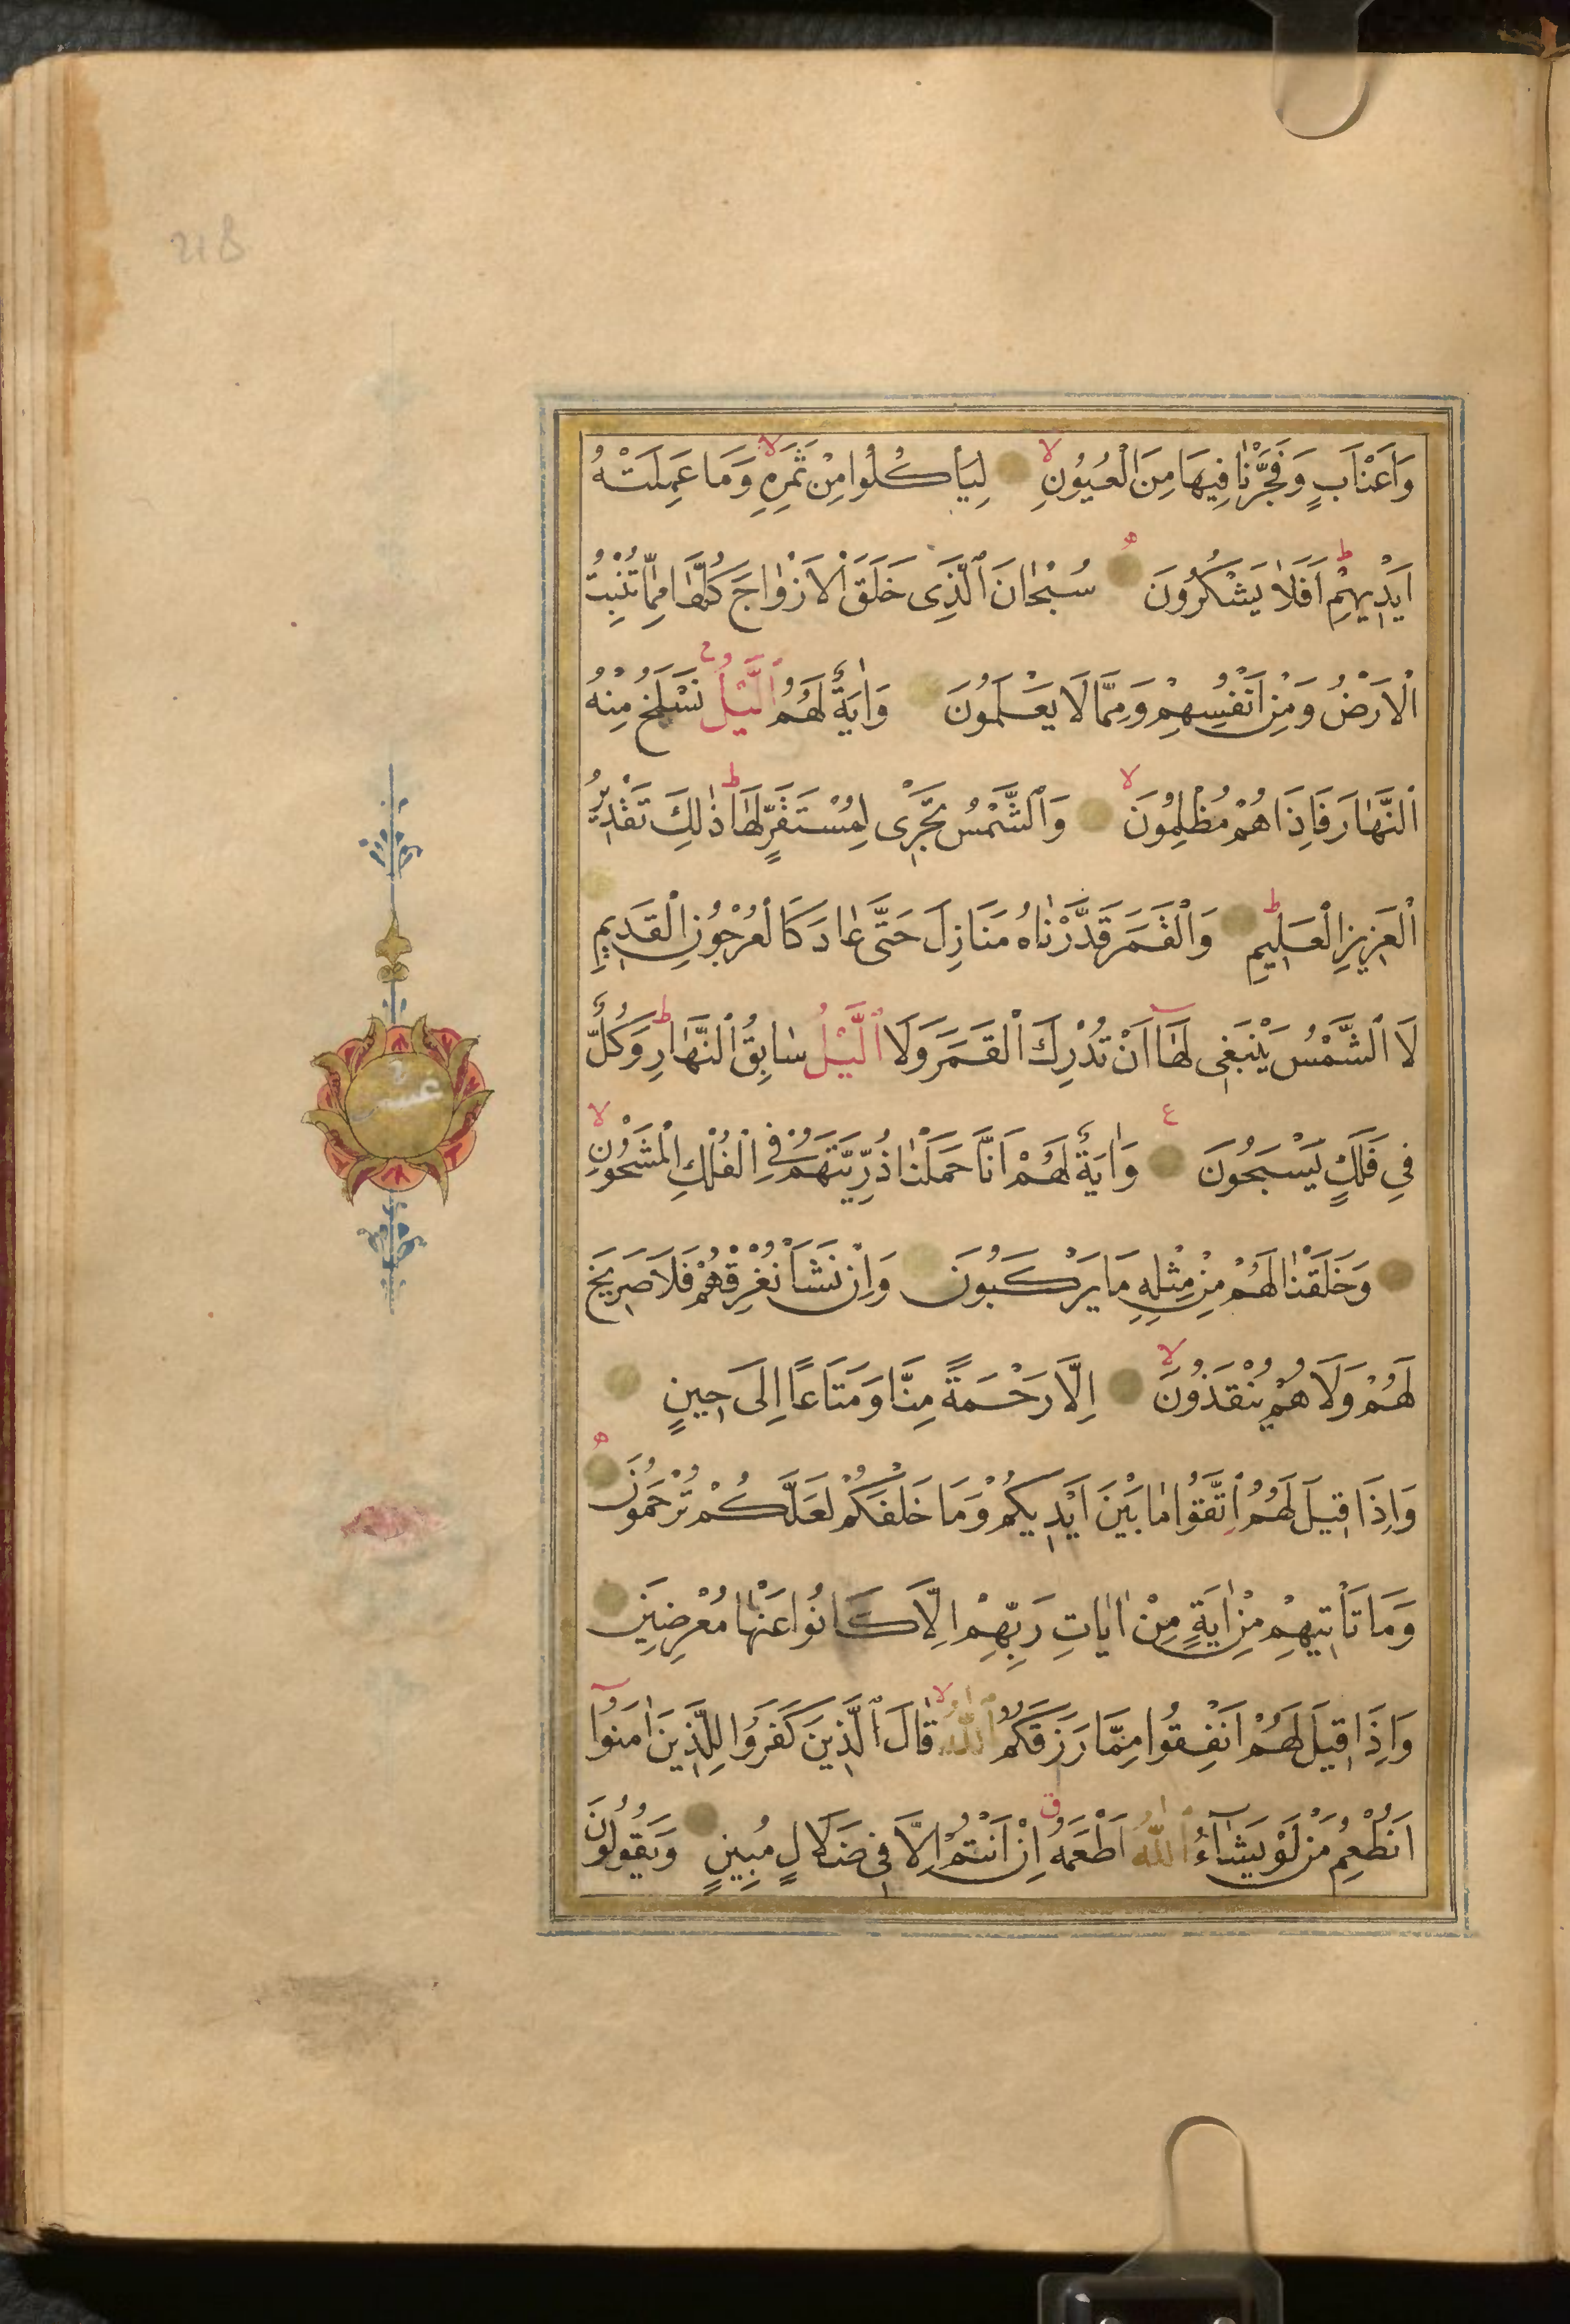 218
وَاَعْنَابٍ وَفَجَّرْنَا فِيهَا مِنَ الْعُيُونِ لا لِيَأْكُلُوا مِنْ ثَمَرِهِ لا وَمَا عَمِلَتْهُ
اَيْدِيهِمْ ط اَفَلَا يَشْكُرُونَ ه سُبْحَانَ الَّذِى خَلَقَ الْاَزْوَاجَ كُلَّهَا مِمَّا تُنْبِتُ
الْاَرْضُ وَمِنْ اَنْفُسِهِمْ وَمِمَّا لَا يَعْلَمُونَ وَاٰيَةٌ لَهُمُ الَّيْلُ نَسْلَخُ مِنْهُ
النَّهَارَ فَاِذَا هُمْ مُظْلِمُونَ لا وَالشَّمْسُ تَجْرِى لِمُسْتَقَرٍّ لَهَا ط ذٰلِكَ تَقْدِيرُ
الْعَزِيزِ الْعَلِيمِ ط وَالْقَمَرَ قَدَّرْنَاهُ مَنَازِلَ حَتَّى عَادَ كَالْعُرْجُونِ الْقَدِيمِ
لَا الشَّمْسُ يَنْبَغِى لَهَا اَنْ تُدْرِكَ الْقَمَرَ وَلَا الَّيْلُ سَابِقُ النَّهَارِ ط وَكُلٌّ
فِى فَلَكٍ يَسْبَحُونَ ع وَاٰيَةٌ لَهُمْ اَنَّا حَمَلْنَا ذُرِّيَّتَهُمْ فِى الْفُلْكِ الْمَشْحُونِ لا
وَخَلَقْنَا لَهُمْ مِنْ مِثْلِهِ مَا يَرْكَبُونَ وَاِنْ نَشَأْ نُغْرِقْهُمْ فَلَا صَرِيخَ
لَهُمْ وَلَا هُمْ يُنْقَذُونَ لا اِلَّا رَحْمَةً مِنَّا وَمَتَاعًا اِلَى حِينٍ
وَاِذَا قِيلَ لَهُمُ اتَّقُوا مَا بَيْنَ اَيْدِيكُمْ وَمَا خَلْفَكُمْ لَعَلَّكُمْ تُرْحَمُونَ ه
وَمَا تَأْتِيهِمْ مِنْ اٰيَةٍ مِنْ اٰيَاتِ رَبِّهِمْ اِلَّا كَانُوا عَنْهَا مُعْرِضِينَ
وَاِذَا قِيلَ لَهُمْ اَنْفِقُوا مِمَّا رَزَقَكُمُ اللّٰهُ لا قَالَ الَّذِينَ كَفَرُوا لِلَّذِينَ اٰمَنُوا
اَنُطْعِمُ مَنْ لَوْ يَشَاءُ اللّٰهُ اَطْعَمَهُ ق اِنْ اَنْتُمْ اِلَّا فِى ضَلَالٍ مُبِينٍ وَيَقُولُونَ
عشر